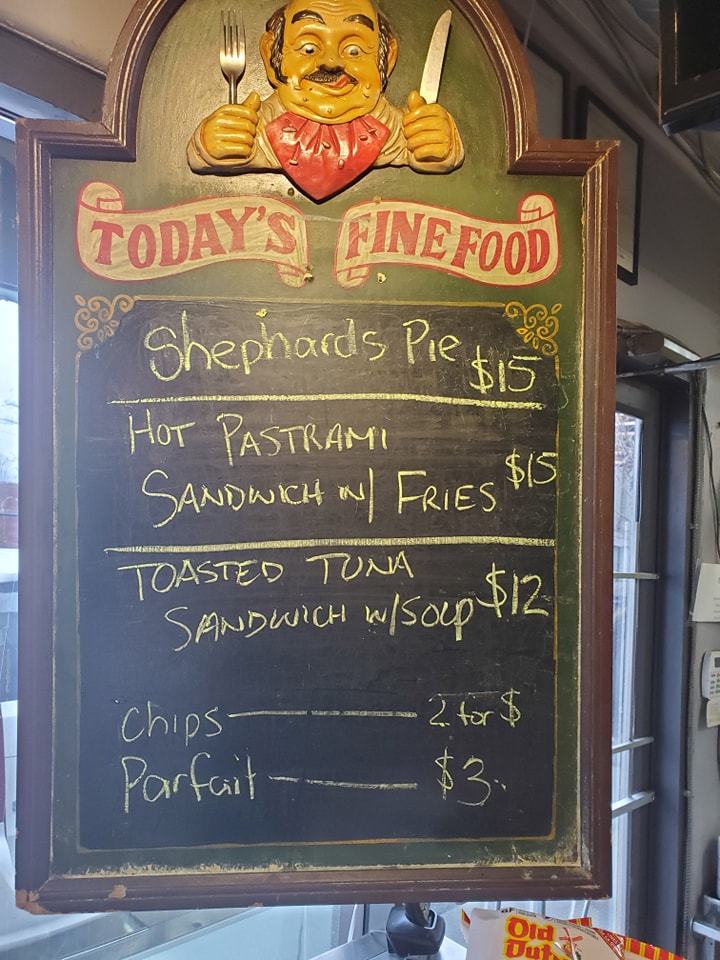 TODAY'S FINE FOOD
Shephards Pie $15
HOT PASTRAMI
SANDWICH W/ FRIES $15
TOASTED TUNA
SANDWICH W/SOUP $12
Chips 2 for $
Parfait $3.
Old
Dut